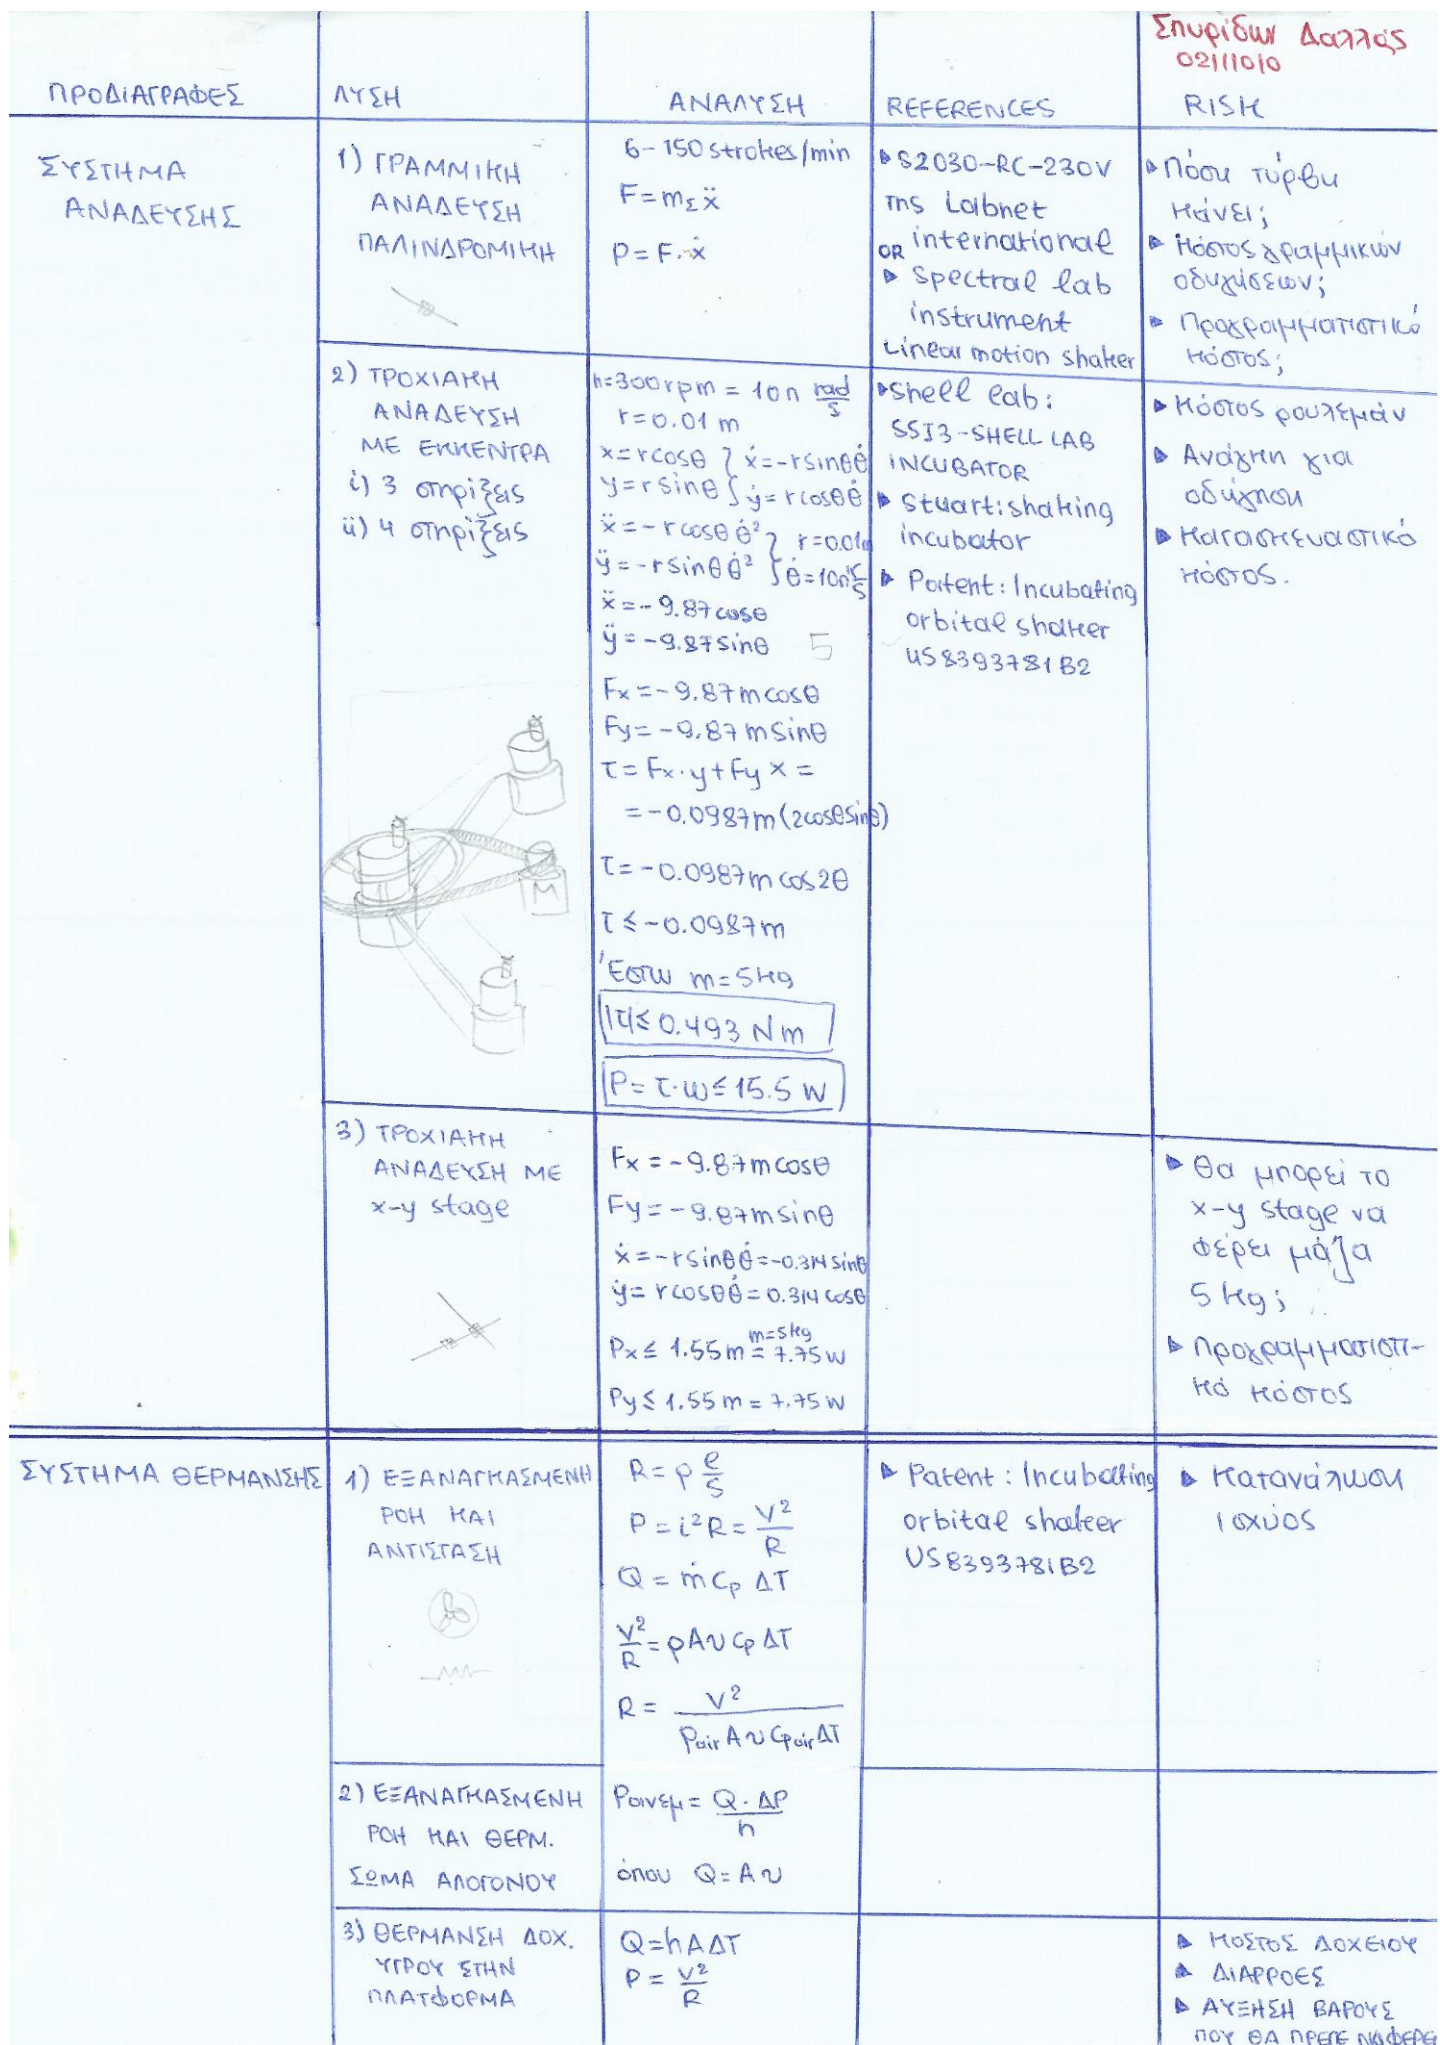 Σπυρίδων Δαλλάς
02111010
ΠΡΟΔΙΑΓΡΑΦΕΣ
ΛΥΣΗ
ΑΝΑΛΥΣΗ
REFERENCES
RISK
ΣΥΣΤΗΜΑ
ΑΝΑΔΕΥΣΗΣ
1) ΓΡΑΜΜΙΚΗ
ΑΝΑΔΕΥΣΗ
ΠΑΛΙΝΔΡΟΜΙΚΗ
6-150 strokes/min
F = m_Σ ẍ
P = F·ẋ
▸ S2030-RC-230V
της Labnet
OR international
▸ Spectral lab
instrument
Linear motion shaker
▸ Πόση τύρβη
κάνει;
▸ Κόστος γραμμικών
οδηγήσεων;
▸ Προγραμματιστικό
κόστος;
2) ΤΡΟΧΙΑΚΗ
ΑΝΑΔΕΥΣΗ
ΜΕ ΕΚΚΕΝΤΡΑ
i) 3 στηρίξεις
ii) 4 στηρίξεις
M
n=300rpm = 10π rad/s
r=0.01 m
x=rcosθ } ẋ=-rsinθθ̇
y=rsinθ } ẏ=rcosθθ̇
ẍ=-rcosθ θ̇² } r=0.01m
ÿ=-rsinθ θ̇² } θ̇=10π r/s
ẍ=-9.87cosθ
ÿ=-9.87sinθ 5
Fx=-9.87mcosθ
Fy=-9.87msinθ
τ=Fx·y+Fy x =
=-0.0987m(2cosθsinθ)
τ=-0.0987m cos2θ
τ≤-0.0987m
Έστω m=5kg
|τ|≤0.493 Nm
P=τ·ω≤15.5 W
▸ Shell lab:
SSI3-SHELL LAB
INCUBATOR
▸ Stuart: shaking
incubator
▸ Patent: Incubating
orbital shaker
US8393781B2
▸ Κόστος ρουλεμάν
▸ Ανάγκη για
οδήγηση
▸ Κατασκευαστικό
κόστος.
3) ΤΡΟΧΙΑΚΗ
ΑΝΑΔΕΥΣΗ ΜΕ
x-y stage
Fx=-9.87mcosθ
Fy=-9.87msinθ
ẋ=-rsinθθ̇=-0.314sinθ
ẏ=rcosθθ̇=0.314cosθ
Px≤ 1.55m =(m=5kg) 7.75W
Py≤ 1.55m = 7.75W
▸ Θα μπορεί το
x-y stage να
φέρει μάζα
5kg;
▸ Προγραμματιστι-
κό κόστος
ΣΥΣΤΗΜΑ ΘΕΡΜΑΝΣΗΣ
1) ΕΞΑΝΑΓΚΑΣΜΕΝΗ
ΡΟΗ ΚΑΙ
ΑΝΤΙΣΤΑΣΗ
R = ρ ℓ/S
P = i²R = V²/R
Q = ṁ Cp ΔT
V²/R = ρAυ Cp ΔT
R = V²/(ρair A υ Cpair ΔT)
▸ Patent: Incubating
orbital shaker
US8393781B2
▸ Κατανάλωση
ισχύος
2) ΕΞΑΝΑΓΚΑΣΜΕΝΗ
ΡΟΗ ΚΑΙ ΘΕΡΜ.
ΣΩΜΑ ΑΛΟΓΟΝΟΥ
Pανεμ = Q·ΔP/n
όπου Q=Aυ
3) ΘΕΡΜΑΝΣΗ ΔΟΧ.
ΥΓΡΟΥ ΣΤΗΝ
ΠΛΑΤΦΟΡΜΑ
Q=hAΔT
P = V²/R
▸ ΚΟΣΤΟΣ ΔΟΧΕΙΟΥ
▸ ΔΙΑΡΡΟΕΣ
▸ ΑΥΞΗΣΗ ΒΑΡΟΥΣ
ΠΟΥ ΘΑ ΠΡΕΠΕ ΝΑ ΦΕΡΕΙ